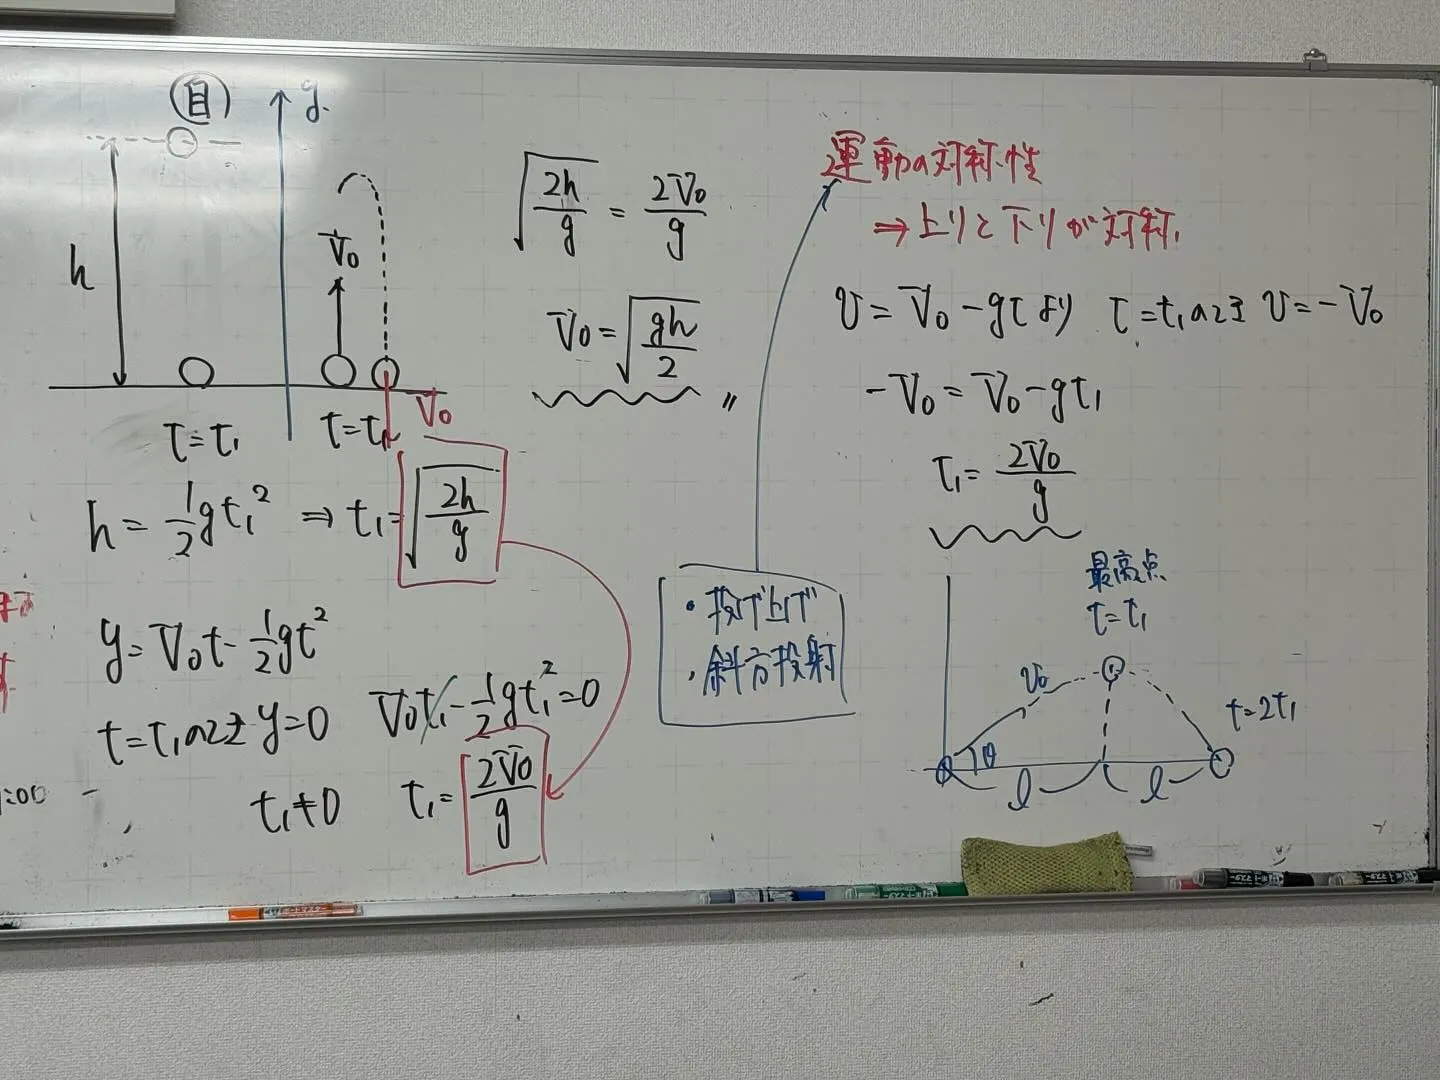 自
y
h
V₀
V₀
t=t₁
t=t₁
h=½gt₁² ⇒ t₁=√(2h/g)
y=V₀t-½gt²
t=t₁のとき y=0
V₀t₁-½gt₁²=0
t₁≠0
t₁=2V₀/g
√(2h/g)=2V₀/g
V₀=√(gh/2)〃
・投げ上げ
・斜方投射
運動の対称性
⇒上りと下りが対称
v=V₀-gtより t=t₁のとき v=-V₀
-V₀=V₀-gt₁
t₁=2V₀/g
最高点
t=t₁
v₀
θ
t=2t₁
l
l
:00